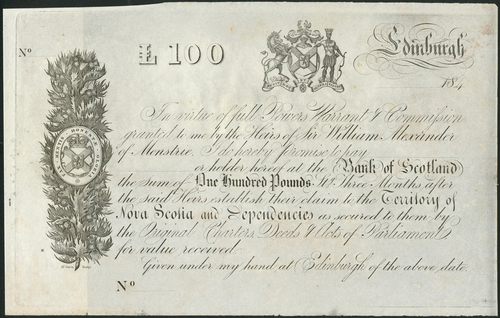 £ 100
Edinburgh
No
184
In virtue of full Powers Warrant & Commission
granted to me by the Heirs of Sir William Alexander
of Menstrie. I do hereby Promise to pay
or holder hereof at the Bank of Scotland
the sum of One Hundred Pounds Stg Three Months after
the said Heirs establish their claim to the Territory of
Nova Scotia and Dependencies as secured to them by
the Original Charters, Deeds & Acts of Parliament
for value received.
Given under my hand at Edinburgh of the above date
No